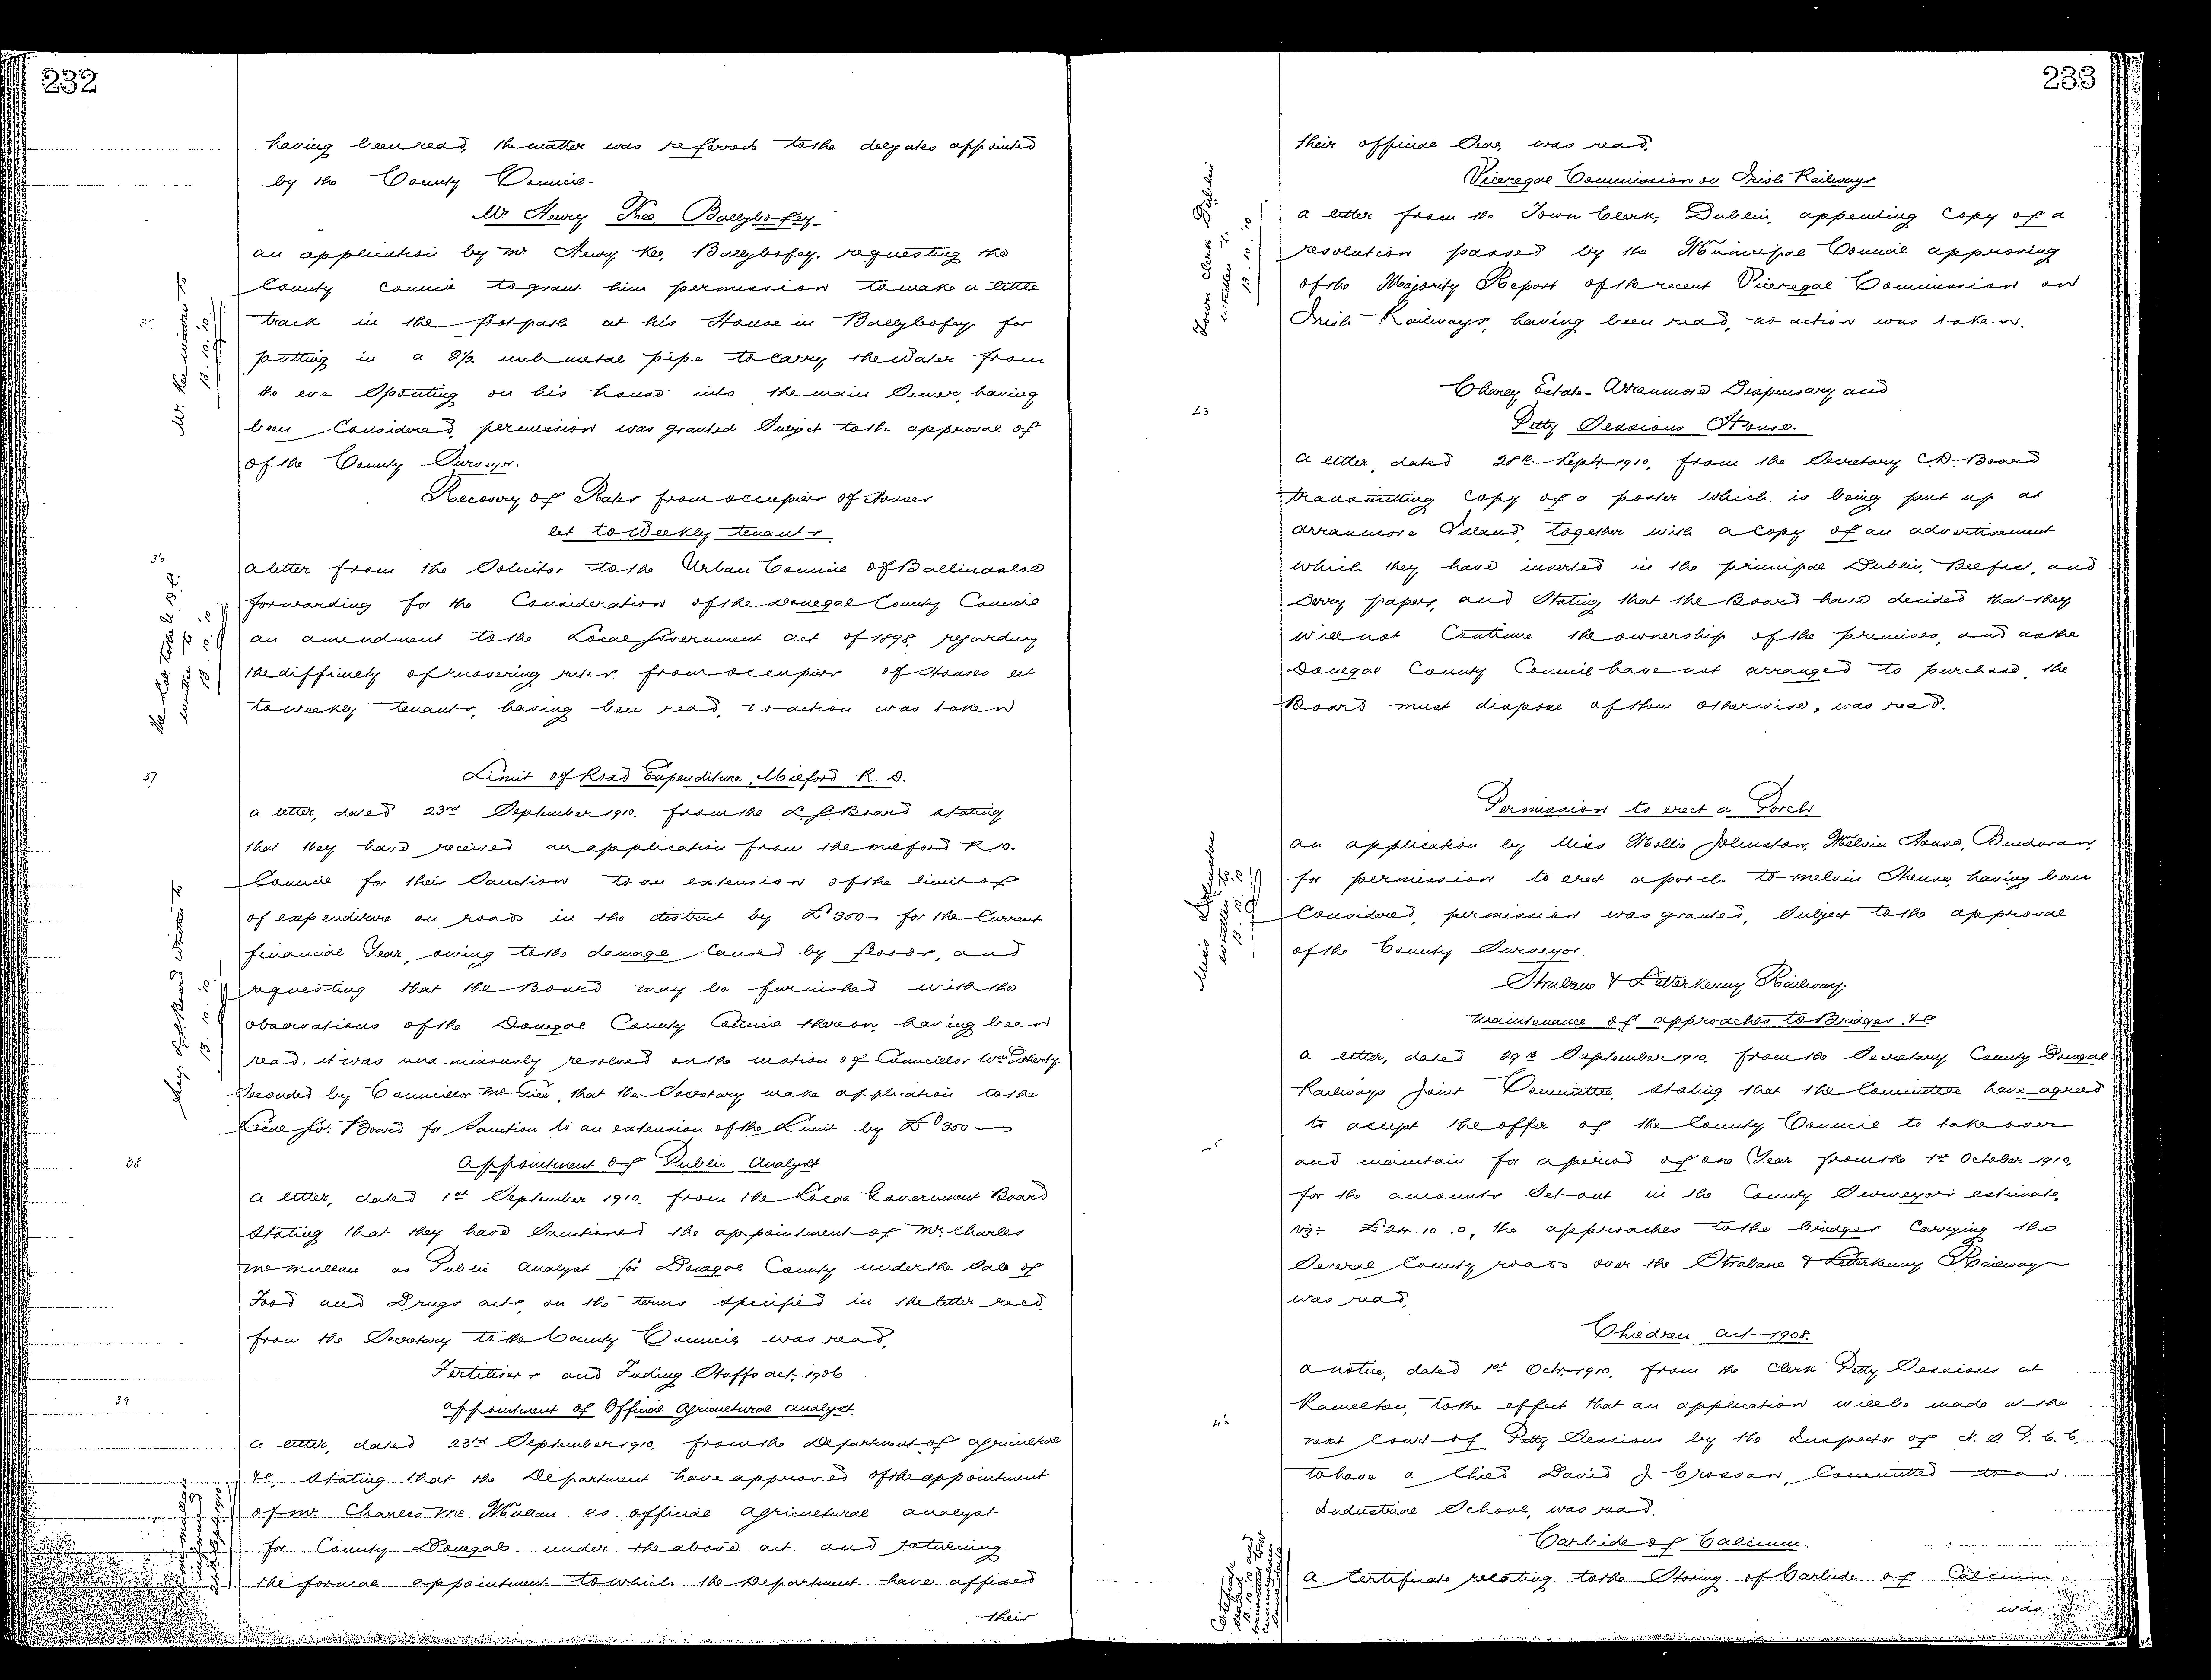 232
having been read, the matter was referred to the delegates appointed
by the County Council.
Mr Henry Kee, Ballybofey.
an application by Mr Henry Kee, Ballybofey, requesting the
County Council to grant him permission to make a little
35
track in the footpath at his House in Ballybofey for
putting in a 2½ inch metal pipe to carry the water from
the eve Spouting on his house into the main Sewer, having
been Considered, permission was granted Subject to the approval of
of the County Surveyor.
Mr. Kee written to
13.10.10
Recovery of Rates from occupiers of Houses
let to Weekly tenants
36
a letter from the Solicitor to the Urban Council of Ballinasloe
forwarding for the Consideration of the Donegal County Council
an amendment to the Local Government act of 1898, regarding
the difficulty of recovering rates from occupiers of Houses let
to weekly tenants, having been read, no action was taken
written to
13.10.10
37
Limit of Road Expenditure, Milford R.D.
a letter, dated 23rd September 1910, from the L.G. Board stating
that they have received an application from the Milford R.D.
Council for their Sanction to an extension of the limit of
of expenditure on roads in the district by £350 for the Current
financial Year, owing to the damage Caused by floods, and
requesting that the Board may be furnished with the
observations of the Donegal County Council thereon, having been
read, it was unanimously resolved on the motion of Councillor Wm Doherty,
Seconded by Councillor McGee, that the Secretary make application to the
Local Govt. Board for Sanction to an extension of the Limit by £350
Board written to
13.10.10
38
Appointment of Public Analyst
a letter, dated 1st September 1910, from the Local Government Board
Stating that they have Sanctioned the appointment of Mr. Charles
McMullan as Public Analyst for Donegal County under the Sale of
Food and Drugs acts, on the terms Specified in the letter recd.
from the Secretary to the County Council, was read.
Fertilisers and Feeding Stuffs act, 1906
39
appointment of Official Agricultural analyst.
a letter, dated 23rd September 1910, from the Department of agriculture
&c. Stating that the Department have approved of the appointment
of Mr. Charles Mc Mullan as official Agricultural analyst
for County Donegal under the above act and returning
the formal appointment to which the Department have affixed
their
233
their official Seal, was read.
Viceregal Commission on Irish Railways
a letter from the Town Clerk, Dublin, appending Copy of a
resolution passed by the Municipal Council approving
of the Majority Report of the recent Viceregal Commission on
Irish Railways, having been read, no action was taken.
Town Clerk Dublin
written to.
13.10.10
Charley Estate - Arranmore Dispensary and
43
Petty Sessions House.
a letter, dated 28th Sept. 1910, from the Secretary C.D. Board
transmitting Copy of a poster which is being put up at
Arranmore Island, together with a Copy of an advertisement
which they have inserted in the principal Dublin, Belfast, and
Derry papers, and Stating that the Board have decided that they
will not Continue the ownership of the premises, and as the
Donegal County Council have not arranged to purchase, the
Board must dispose of them otherwise, was read.
Permission to erect a Porch
an application by Miss Mollie Johnston, Melvin House, Bundoran,
for permission to erect a porch to Melvin House, having been
Considered, permission was granted, Subject to the approval
of the County Surveyor.
Miss Johnston
written to
13.10.10
Strabane & Letterkenny Railway.
Maintenance of approaches to Bridges &c
a letter, dated 29th September 1910, from the Secretary County Donegal
Railways Joint Committee, Stating that the Committee have agreed
to accept the offer of the County Council to take over
and maintain for a period of one Year from the 1st October 1910,
for the amounts Set out in the County Surveyor's estimate,
viz: £24.10.0, the approaches to the bridges Carrying the
Several County roads over the Strabane & Letterkenny Railway
was read.
Children act 1908.
a notice, dated 1st Oct. 1910, from the Clerk Petty Sessions at
Ramelton, to the effect that an application will be made at the
next Court of Petty Sessions by the Inspector of N.S.P.C.C.
to have a Child David J Crossan, Committed to an
Industrial School, was read.
Carbide of Calcium
a Certificate relating to the Storing of Carbide of Calcium
was